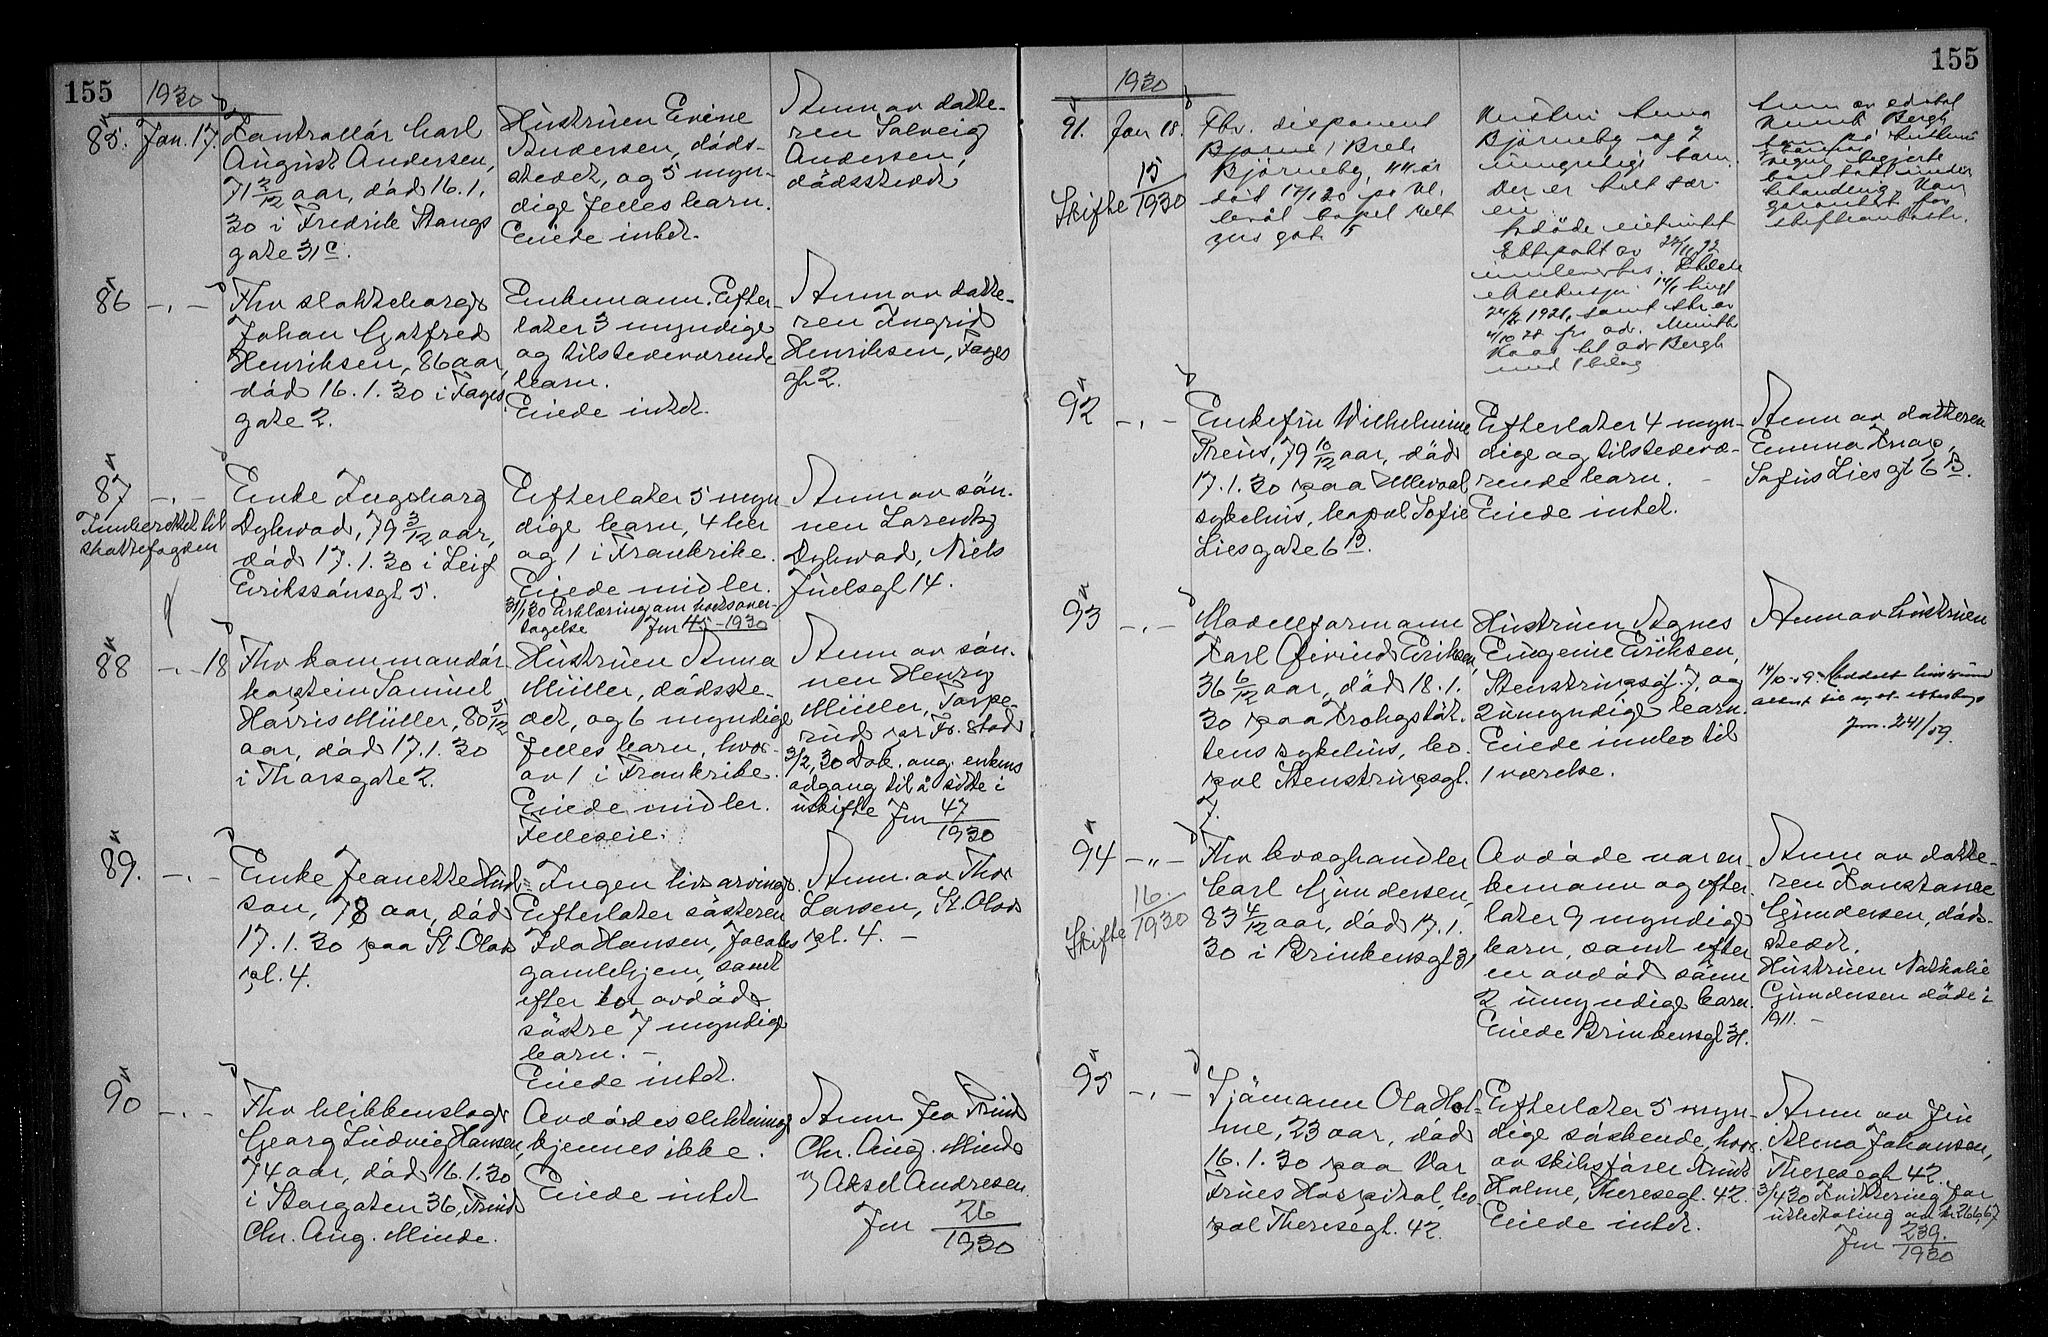 155
1930
85. Jan. 17. Kontrollør Carl
August Andersen,
71 2/12 aar, død 16.1.
30 i Fredrik Stangs
gate 31 c.
Hustruen Evine
Andersen, døds-
stedet, og 5 myn-
dige felles barn.
Eiede intet.
Anm av datte-
ren Solveig
Andersen,
dødsstedet
86 -"- Fhv
Johan Gotfred
Henriksen, 86 aar,
død 16.1.30 i Fages
gate 2.
Enkemann. Efter-
later 3 myndige
og tilstedeværende
barn.
Eiede intet.
Anm av datte-
ren Ingrid
Henriksen, Fages
gt 2.
87 -"- Enke Ingeborg
Dybwad, 79 3/12 aar,
død 17.1.30 i Leif
Erikssønsgt 5.
Innberettet til
skattefogden
Efterlater 5 myn
dige barn, 4 her
og 1 i Frankrike.
Eiede midler.
31/1 30 Erklæring om bo'sover-
tagelse Jnr 45-1930
Anm av søn-
nen Lorentz
Dybwad, Niels
Juelsgt 14.
88 -"- 18 Fhv kommandør-
kaptein Samuel
Harris Müller, 80 5/12
aar, død 17.1.30
i Thorsgate 2.
Hustruen Anna
Müller, dødsste-
det, og 6 myndige
felles barn, hvor-
av 1 i Frankrike.
Eiede midler.
Felleseie.
Anm av søn-
nen Henry
Müller, Torpe-
rud pr Fr.stad
3/2, 30 Dok. ang. enkens
adgang til å sitte i
uskifte Jnr 47/1930
89. -"- Enke Jeanette
son, 78 aar, død
17.1.30 paa St. Olavs
pl. 4.
Ingen livsarvinge.
Efterlater søsteren
Ida Hansen, Jacobs
gamlehjem, samt
efter to avdøde
søstre 7 myndige
barn. -
Eiede intet.
Anm. av Thor
Larsen, St. Olavs
pl. 4. -
90 -"- Fhv blikkenslager
Georg Ludvig Hansen,
74 aar, død 16.1.30
i Storgaten 36,
Chr. Aug. Minde.
Avdødes slektninge
kjennes ikke.
Eiede intet
Anm fra
Chr. Aug. Minde
v/ Aksel Andresen.
Jnr 26/1930
155
1930
91. Jan 18. Fhv. disponent
Bjarne
Bjørneby, 44 år
død 17/1 30 på Ul-
levål bopel Welt
zins gate 5
Skifte 15/1930
Hustru Anna
Bjørneby og 7
umyndige barn.
Der er helt sær-
eie
Ektepakt av
innleveres.
24/2 1921, samt
4/10 28 fr. adv. Munthe
Kaas til adv Bergh
med 1 bilag
Anm av
Bergh
på hustruens
vegne begjerte
boet tatt under
behandling
garantert for
skifteomkostn.
92 -"- Enkefru Wilhelmine
Preus, 79 10/12 aar, død
17.1.30 paa Ullevaal
sykehus, bopæl Sofie
Liesgate 6 B.
Efterlater 4 myn-
dige og tilstedevæ-
rende barn. -
Eiede intet.
Anm av datteren
Emma
Sofus Liesgt 6 B.
93 -"- Modellformann
Karl Øivind Eriksen,
36 6/12 aar, død 18.1.
30 paa Krohgstøt-
tens sykehus, bo-
pæl Stenstrupsgt.
7.
Hustruen Agnes
Eugenie Eriksen,
Stenstrupsgt. 7, og
2 umyndige barn.
Eiede innbo til
1 værelse.
Anm av hustruen
Jnr. 241/59.
94 -"- Fhv kvæghandler
Carl Gundersen,
83 4/12 aar, død 17.1.
30 i Brinkensgt 31
Skifte 16/1930
Avdøde var en-
kemann og efter-
later 9 myndige
barn, samt efter
en avdød sønn
2 umyndige barn.
Eiede Brinkensgt 31.
Anm av datte-
ren Konstance
Gundersen, døds-
stedet.
Hustruen Nathalie
Gundersen døde i
1911. -
95 -"- Sjømann Ola Hol-
me, 23 aar, død
16.1.30 paa Vor
Frues Hospital, bo-
pæl Theresegt. 42.
Efterlater 5 myn-
dige søskende, hvor-
av skibsfører Knut
Holme, Theresegt. 42.
Eiede intet.
Anm av fru
Alma Johansen,
Theresegt 42.
3/4 30 Kvittering for
utbetaling av kr 266,67
Jnr 239./1930